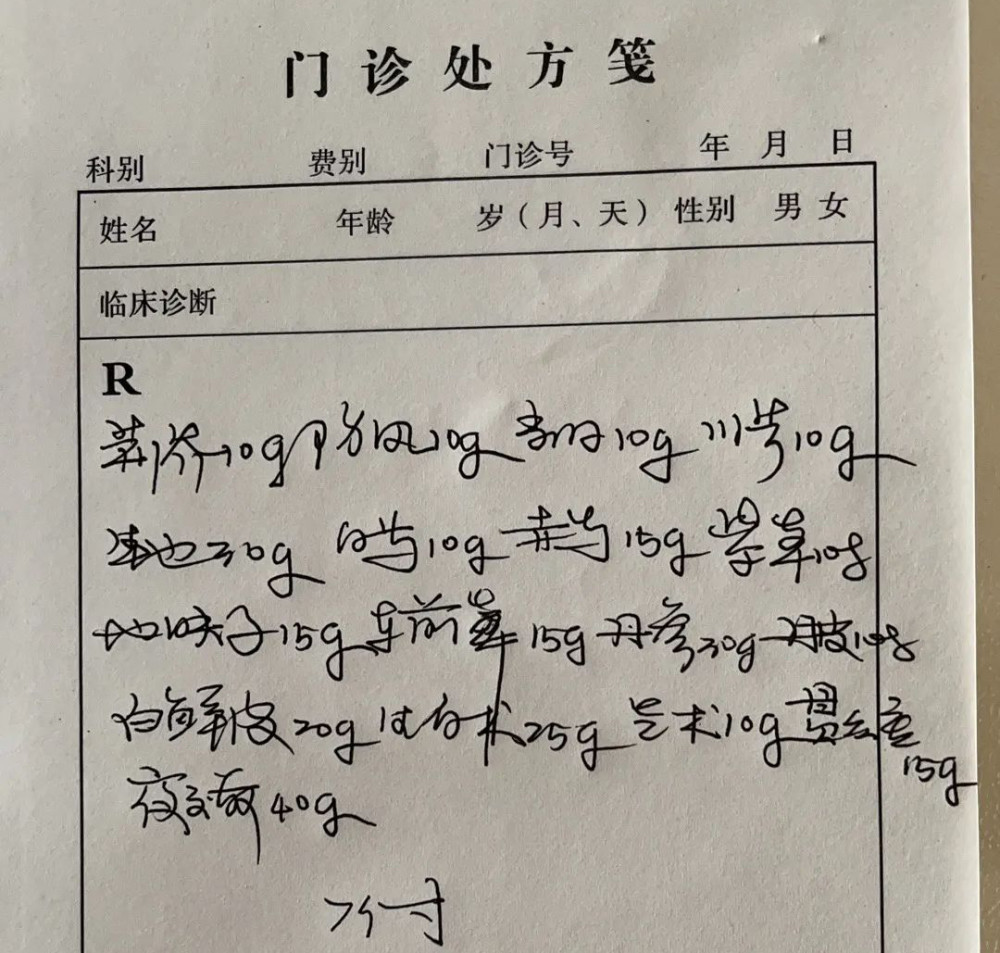 门诊处方笺
科别 费别 门诊号 年 月 日
姓名 年龄 岁(月、天) 性别 男 女
临床诊断
R
荆芥10g 防风10g 当归10g 川芎10g
生地30g 白芍10g 赤芍15g 紫草10g
地肤子15g 车前草15g 丹参30g 丹皮10g
白鲜皮20g 白术25g 苍术10g 15g
夜交藤40g
7付